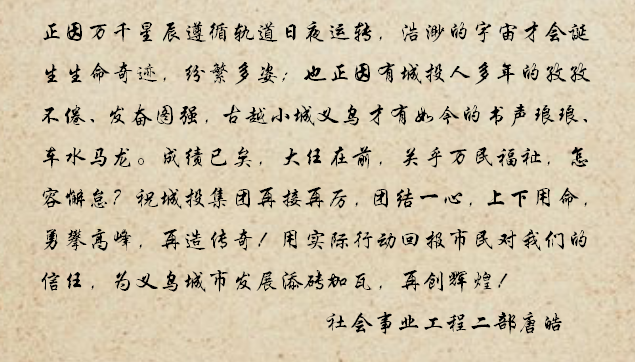 正因万千星辰遵循轨道日夜运转，浩渺的宇宙才会诞
生生命奇迹，纷繁多姿；也正因有城投人多年的孜孜
不倦、发奋图强，古越小城义乌才有如今的书声琅琅、
车水马龙。成绩已矣，大任在前，关乎万民福祉，怎
容懈怠？祝城投集团再接再厉，团结一心，上下用命，
勇攀高峰，再造传奇！用实际行动回报市民对我们的
信任，为义乌城市发展添砖加瓦，再创辉煌！
社会事业工程二部唐皓